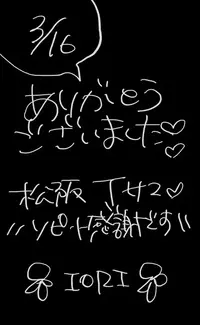 3/16
ありがとう
ございました♡♡
松阪 Tサマ♡
リピート感謝です!!
IORI